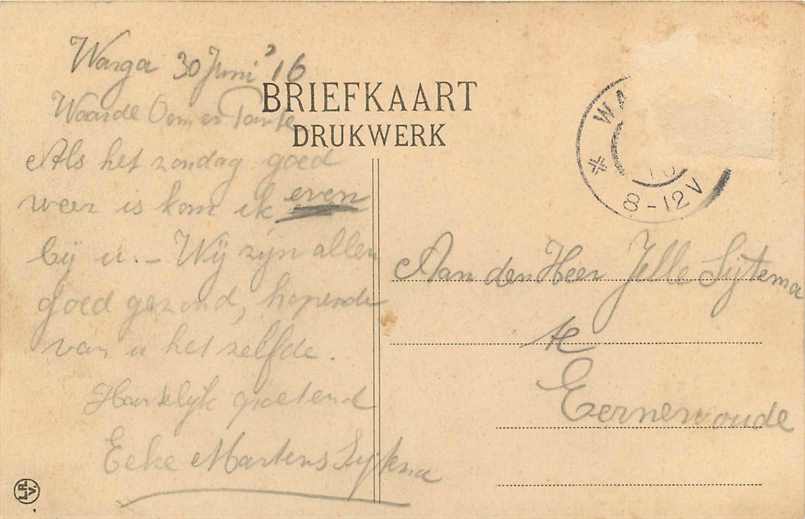 Warga 30 Juni '16
BRIEFKAART
DRUKWERK
Waarde Oom en Tante
Als het zondag goed
weer is kom ik even
bij u. - Wij zijn allen
goed gezond, hopende
van u het zelfde.
Hartelijk groetend
Eeke Martens Sytema
WA
8-12V
Aan den Heer Jelle Sijtema
te
Eernewoude
L.R.
V.